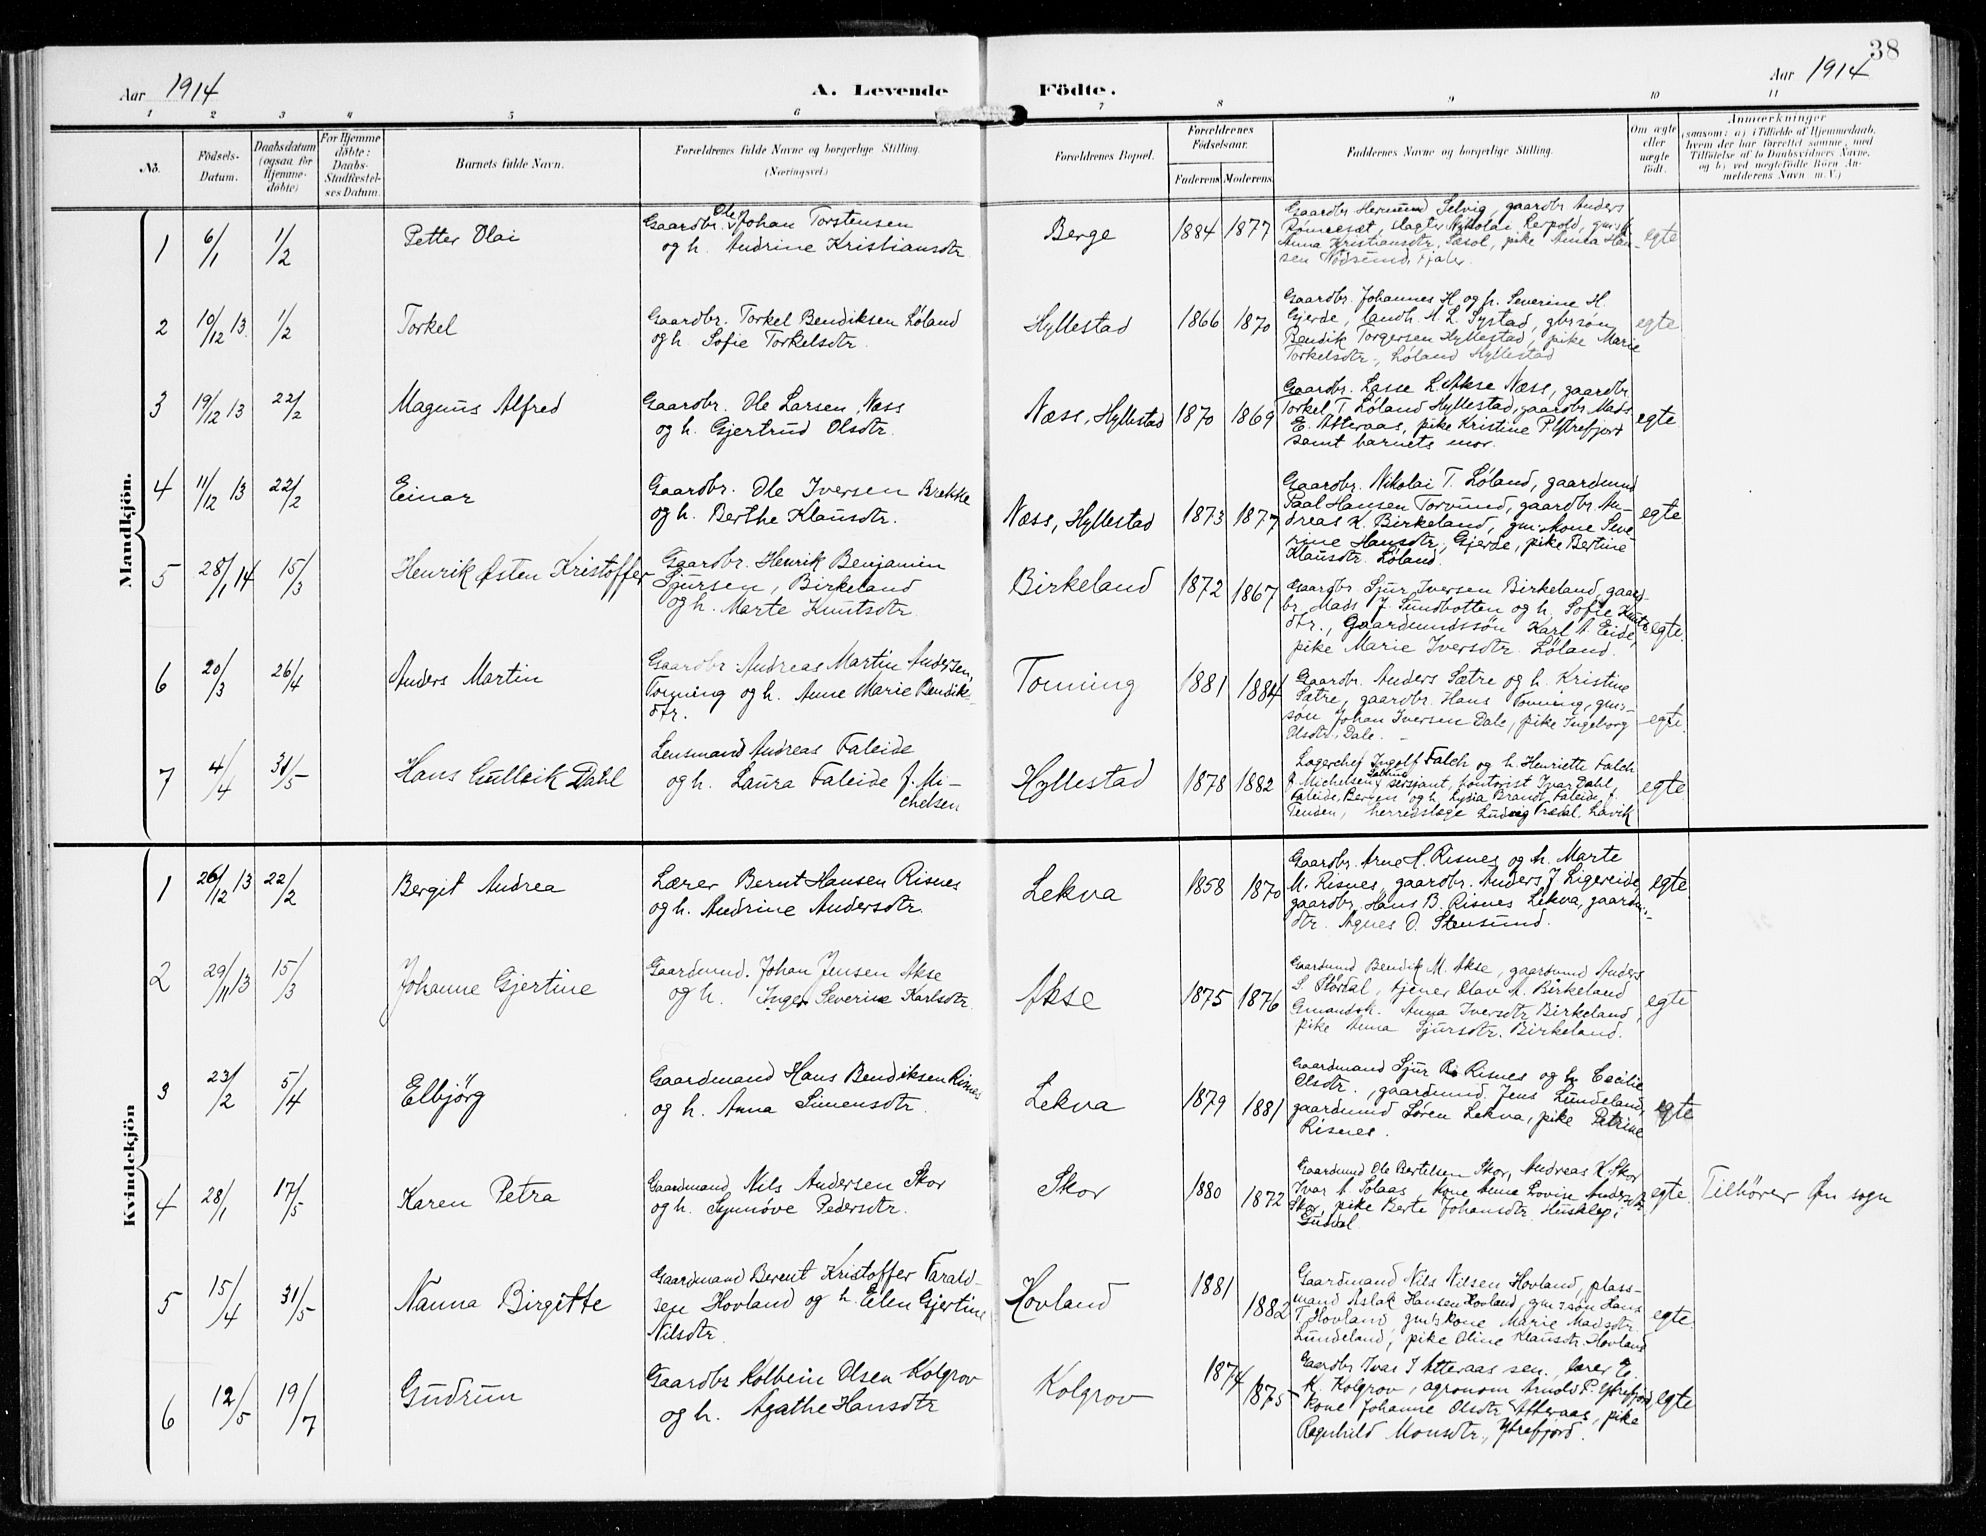 38
Aar 1914
A. Levende Födte.
Aar 1914
1 2 3 4 5 6 7 8 9 10 11
No.
Födsels-Datum.
Daabsdatum (ogsaa for Hjemmedöbte)
For Hjemmedöbte: Daabs-Stadfæstelses Datum.
Barnets fulde Navn.
Forældrenes fulde Navne og borgerlige Stilling. (Næringsvei.)
Forældrenes Bopæl.
Forældrenes Födselsaar.
Faderens Moderens
Faddernes Navne og borgerlige Stilling.
Om ægte eller uægte födt.
Anmærkninger
(saasom: a) i Tilfælde af Hjemmedaab,
hvem der har forrettet samme, med
Tilföielse af to Daabsvidners Navne,
og b) ved uegtefödte Börn An-
melderens Navn m.V.)
Mandkjön.
1 6/1 1/2 Petter Olai
Gaardbr. Ole Johan Torstensen
og h. Andrine Kristiansdtr.
Berge 1884 1877
Gaardbr Hermund Selvig, gaardbr Anders
Nikolai
Anna Kristiansdtr. pike Anna Han-
sen Fjaler
egte
2 10/12 13. 1/2 Torkel
Gaardbr. Torkel Bendiksen Løland
og h. Sofie Torkelsdtr.
Hyllestad 1866 1870
Gaardbr. Johannes H og h. Severine H.
Gjerde, landh. A. L. Systad, gbrsøn
Bendik Torgersen Hyllestad, pike Marie
Torkelsdtr., Løland Hyllestad
egte
3 19/12 13 22/2 Magnus Alfred
Gaardbr. Ole Larsen, Næss
og h. Gjertrud Olsdtr.
Næss, Hyllestad 1870 1869
Gaardbr. Lasse L. Akse Næss, gaardbr
Torkel T. Løland Hyllestad, gaardbr Mads
E. Atteraas, pike Kristine P. Ytrefjord
samt barnets mor.
egte
4 11/12 13 22/2 Einar
Gaardbr. Ole Iversen Brekke
og h. Berthe Klausdtr.
Næss, Hyllestad 1873 1877
Gaardbr. Nikolai T. Løland, gaardmnd
Paal Hansen Torvund, gaardbr An-
dreas K. Birkeland, gm. kone Seve-
rine Hansdtr., Gjerde, pike Bertine
Klausdtr. Løland.
egte
5 28/1 14 15/3 Henrik Østen Kristoffer
Gaardbr. Henrik Benjamin
Sjursen, Birkeland
og h. Marte Knutsdtr.
Birkeland 1872 1867
Gaardbr Sjur Iversen Birkeland, gaard-
br. Mads J. Sundbotten og h. Sofie Knuts-
dtr., Gaardmundssøn Karl A. Eide,
pike Marie Iversdtr. Løland.
egte.
6 20/3 26/4 Anders Martin
Gaardbr. Andreas Martin Andersen,
Tonning og h. Anne Marie Bendiks-
dtr.
Tonning 1881 1884
Gaardbr. Anders Sætre og h. Kristine
Sætre, gaardbr. Hans Tonning, gm-
søn Johan Iversen Dale, pike Ingeborg
Olsdtr. Dale.
egte
7 4/4 31/5 Hans Gulleik Dahl
Lensmand Andreas Faleide
og h. Laura Faleide f. Mi-
chelsen
Hyllestad 1878 1882
Lagerchef Ingolf Falch og h. Henriette Falch
f. Michelsen, sersjant, kontorist Ivar Dahl,
Faleide, Bergen og h. Lydia Brandt Faleide f.
Tenden, herredslæge Ludvig Trædal, Lavik
egte.
Kvindekjön
1 26/12 13 22/2 Bergit Andrea
Lærer Bernt Hansen Risnes
og h. Andrine Andersdtr.
Lekva 1858 1870
Gaardbr. Arne H. Risnes og h. Marte
M. Risnes, gaardbr. Anders J. Ligereide,
gaardbr. Hans B. Risnes Lekva, gaardm-
dtr. Agnes O. Stensund.
egte.
2 29/11 13 15/3 Johanne Gjertine
Gaardmnd. Johan Jensen Akse
og h. Inger Severine Karlsdtr.
Akse 1875 1876
Gaardmnd Bendik M. Akse, gaardmnd Anders
S. Stordal, tjener Olav A. Birkeland
Gmandsk. Anna Iversdtr Birkeland,
pike Anna Sjursdtr. Birkeland.
egte
3 23/2 5/4 Elbjörg
Gaardmand Hans Bendiksen Risnes
og h. Anna Simensdtr.
Lekva 1879 1881
Gaardmand Sjur R. Risnes og h. Cecilie
Olsdtr., gaardmnd. Jens Lundeland,
gaardmnd Søren Lekva, pike Petrine
Risnes.
egte
4 28/1 17/5 Karen Petra
Gaardmand Nils Andersen Skor
og h. Synnøve Pedersdtr.
Skor 1880 1872
Gaardmnd Ole Bertelsen Skor, Andreas K. Skor
Ivar A. Solaas kone Anne Lovise Andersdtr
Skor, pike Berte Johansdtr. Husklep i
Guddal.
egte.
Tilhører Øn sogn
5 15/4 31/5 Nanna Birgitte
Gaardmand Berent Kristoffer Farald-
sen Hovland og h. Elen Gjertine
Nilsdtr.
Hovland 1881 1882
Gaardmand Nils Nilsen Hovland, plass-
mand Aslak Hansen Hovland, gm. søn Hans
T. Hovland, gmskone Marie Madsdtr.
Lundeland, pike Oline Klausdtr. Hovland
egte.
6 12/5 19/7 Gudrun
Gaardbr Kolbein Olsen Kolgrov
og h. Agathe Hansdtr
Kolgrov 1874 1875
Gaardbr Ivar I Atteraas sen., lærer E.
K. Kolgrov, agronom Arnold P. Ytrefjord
kone Johanne Olsdtr Atteraas, pike
Ragnhild Monsdtr., Ytrefjord.
egte